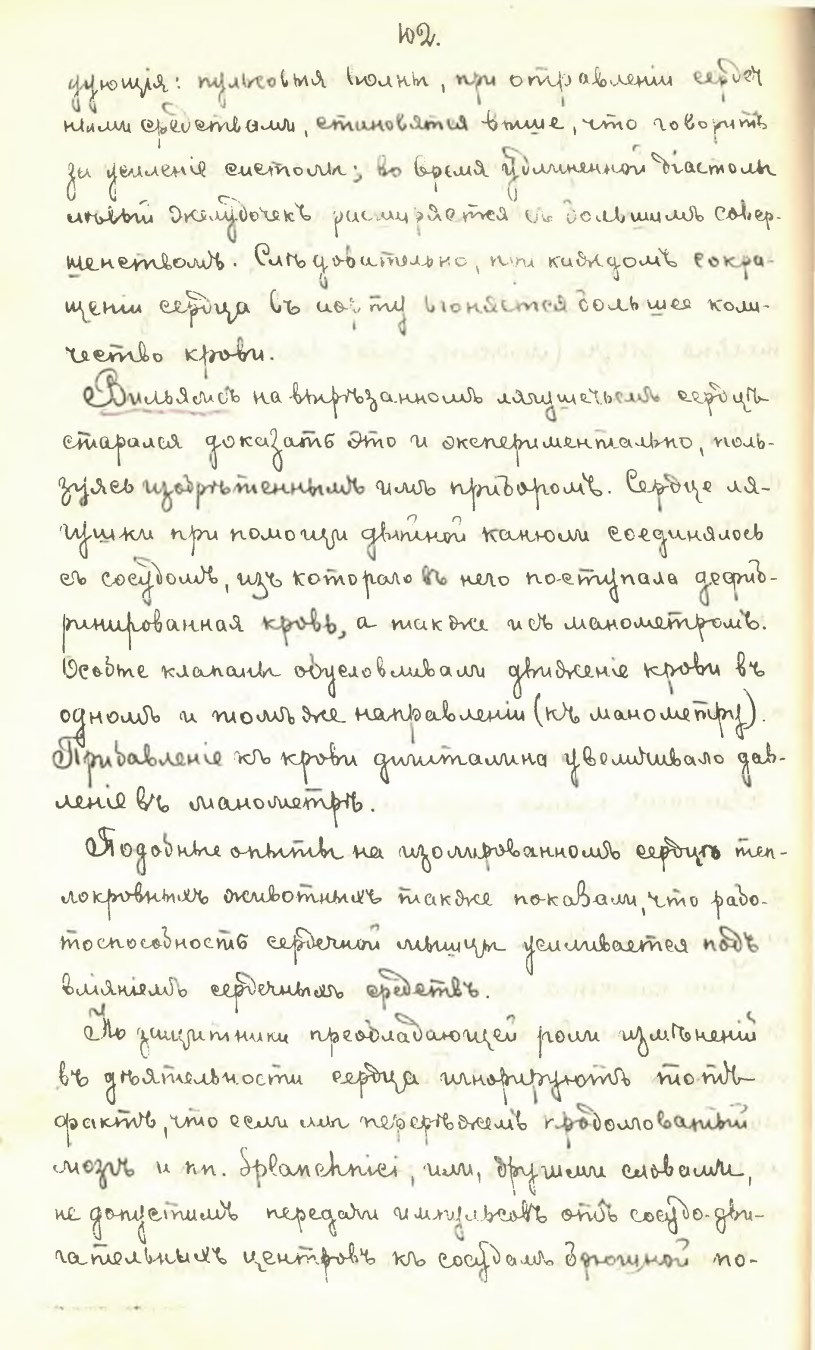 102.
дующiя: пульсовыя волны, при отравленiи сердеч
ными средствами, становятся выше, что говоритъ
за усиленiе систолы; во время удлиненной дiастолы
лѣвый желудочекъ расширяется съ большимъ совер-
шенствомъ. Слѣдовательно, при каждомъ сокра-
щенiи сердца въ аорту вгоняется большее коли-
чество крови.
Вильямсъ на вырѣзанномъ лягушечьемъ сердцѣ
старался доказать это и экспериментально, поль-
зуясь изобрѣтеннымъ имъ приборомъ. Сердце ля-
гушки при помощи двойной канюли соединялось
съ сосудомъ, изъ котораго въ него поступала дефиб-
ринированная кровь, а также и съ манометромъ.
Особые клапаны обусловливали движенiе крови въ
одномъ и томъ же направленiи (къ манометру).
Прибавленiе къ крови дигиталина увеличивало дав-
ленiе въ манометрѣ.
Подобные опыты на изолированномъ сердцѣ теп-
локровныхъ животныхъ также показали, что рабо-
тоспособность сердечной мышцы усиливается подъ
влiянiемъ сердечныхъ средствъ.
Но защитники преобладающей роли измѣненiй
въ дѣятельности сердца игнорируютъ тотъ
фактъ, что если мы перерѣжемъ продолговатый
мозгъ и nn. Splanchnici, или, другими словами,
не допустимъ передачи импульсовъ отъ сосудо-дви-
гательныхъ центровъ къ сосудамъ брюшной по-